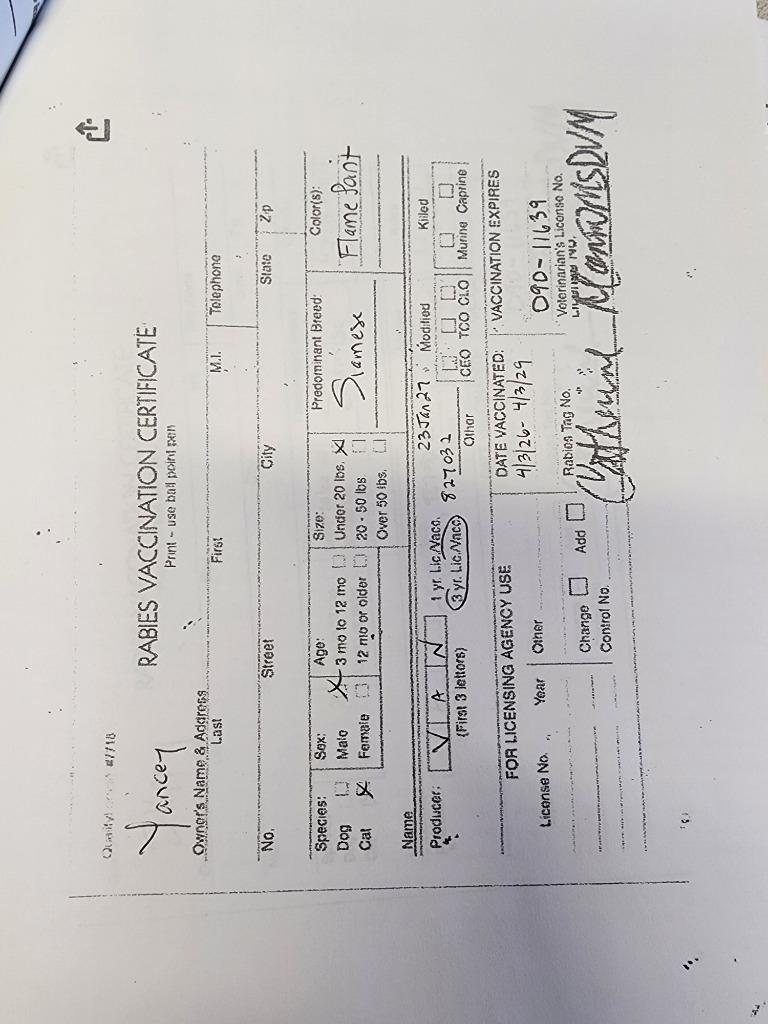 #7718
RABIES VACCINATION CERTIFICATE
Print - use ball point pen
Yancey
Owner's Name & Address
Last First M.I. Telephone
No. Street City State Zip
Species: Sex: Age: Size: Predominant Breed: Color(s):
Dog Male 3 mo to 12 mo Under 20 lbs. Siamese Flame Point
Cat Female 12 mo or older 20 - 50 lbs
Over 50 lbs.
Name
Producer: V A N 1 yr. Lic./Vacc. 23Jan27 Modified Killed
(First 3 letters) 3 yr. Lic./Vacc. 827032 CEO TCO CLO Murine Caprine
Other
FOR LICENSING AGENCY USE DATE VACCINATED: VACCINATION EXPIRES
4/3/26- 4/3/29
License No. Year Other 090-11639
Rabies Tag No. Veterinarian's License No.
Change Add
Control No. Catherine DVM